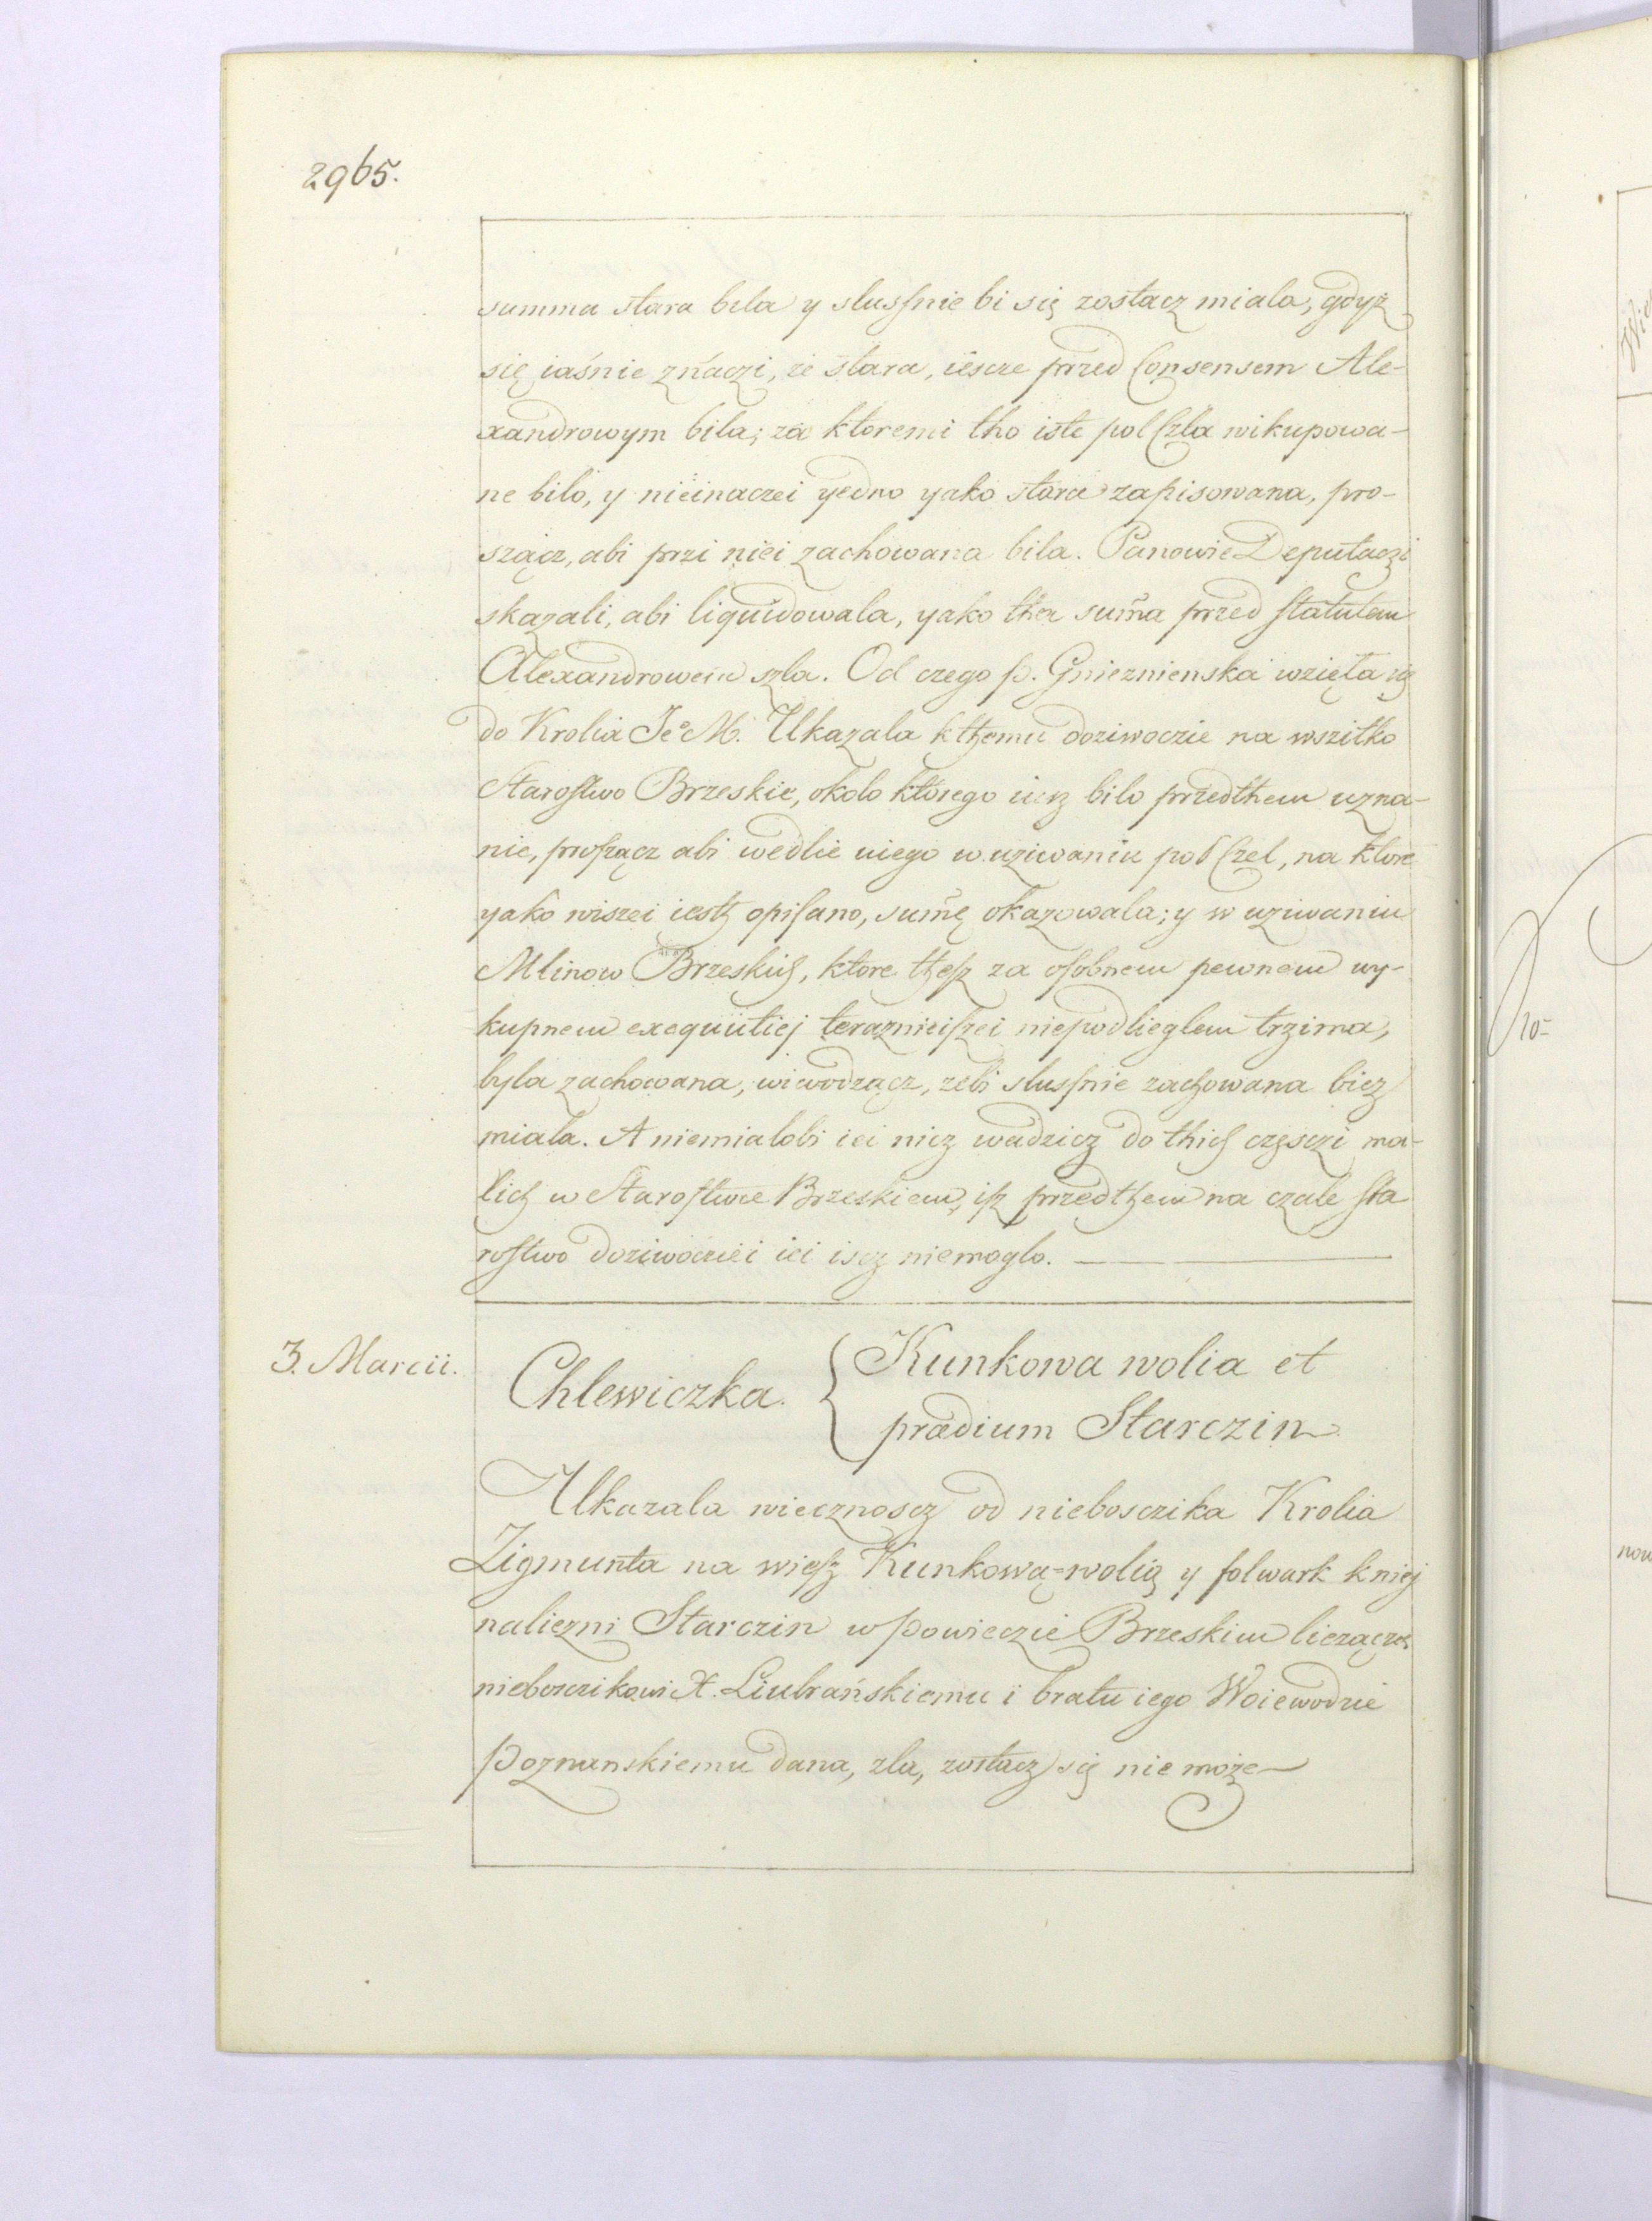 2965.
summa stara bela y slussnie bi się zostacz miala, gdyż
się iaśnie znaczi, że stara, iescze przed Consensem Ale-
xandrowym bila; za ktoremi tho iste pol Czla wikupowa-
ne bilo, y nieinaczei yedno yako stara zapisowana, pro-
szącz, abi przi niei zachowana bila. Panowie Deputaczi
skazali, abi liquidowala, yako tha sum̃a przed statutem
Alexandrowem szla. Od czego p. Gnieznienska wzięta się
do Krolia Je° M. Ukazala k themu doziwoczie na wszitko
Starostwo Brzeskie, okolo ktorego iusz bilo przedthem uzna-
nie, proszącz abi wedlie niego w uziwaniu pol Czel, na ktore
yako wiszei iesth opisano, sum̃ę okazowala; y w uziwaniu
Mlinow Brzeskich, ktore thesz za osobnem pewnem wy-
kupnem exequutiej teraznieiszei niepodlieglem trzima,
byla zachowana, wiwodzącz, zebi slussnie zachowana bicz
miala. A niemialobi iei nicz wadzicz do thich częsczi ma-
lich w Starostwie Brzeskiem, isz przedthem na czale sta
rostwo doziwoczie iei iscz niemoglo.
3. Marcii.
Chlewiczka. { Kunkowa wolia et
prædium Starczin
Ukazala wiecznoscz od nieboszczika Krolia
Zigmunta na wiesz Kunkową-wolią y folwark k niej
naliezni Starczin w Powieczie Brzeskim liezącze
nieboszczikowi X. Liubrańskiemu i bratu iego Woiewodzie
Poznanskiemu dana, zla, zostacz się nie może